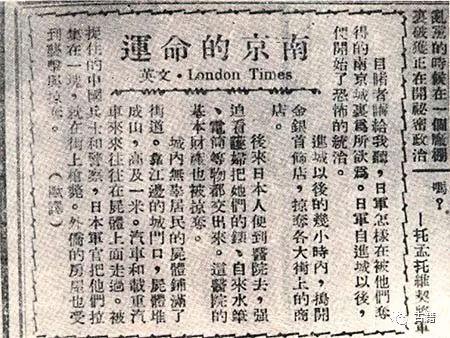 亂黨的時候在一個廠棚
裏破獲正在開祕密政治
嗎？
—托孟托維契將軍
南京的命運
英文·London Times
目睹者講給我聽，日軍怎樣在被他們奪
得的南京城裏爲所欲爲。日軍自進城以後，
便開始了恐怖的統治。
進城以後的幾小時內，搗開
金銀首飾店，掠奪各大街上的商
店。
後來日本人便到醫院去，强
迫看護婦把她們的錶、自來水筆
、電筒等物都交出來。這醫院的
基本財產也被掠奪。
城內無辜居民的屍體鋪滿了
街道。靠江邊的城門口，屍體堆
成山，高及一米。汽車和載重汽
車來來往往在屍體上面走過。被
捉住的中國兵士和警察，日本軍官把他們拉
集在一塊，就在街上槍斃。外僑的房屋也受
到襲擊與掠奪。
古籍